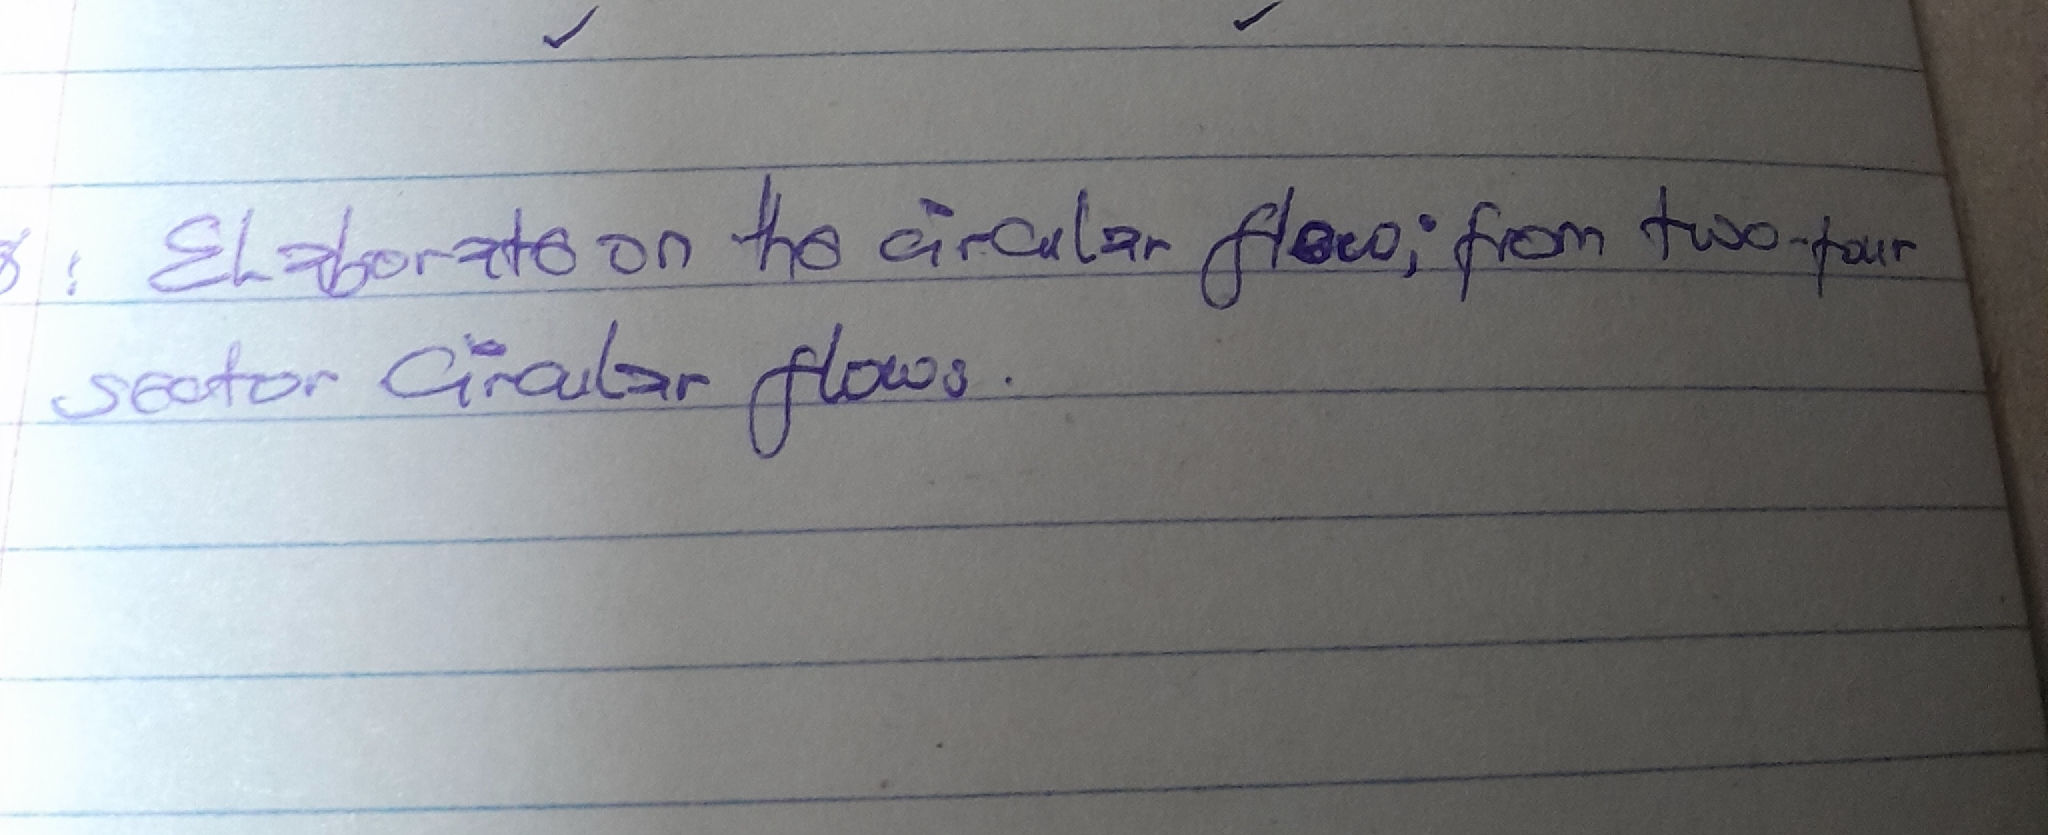 : Elaborate on the circular flow; from two-four
sector Circular flows.